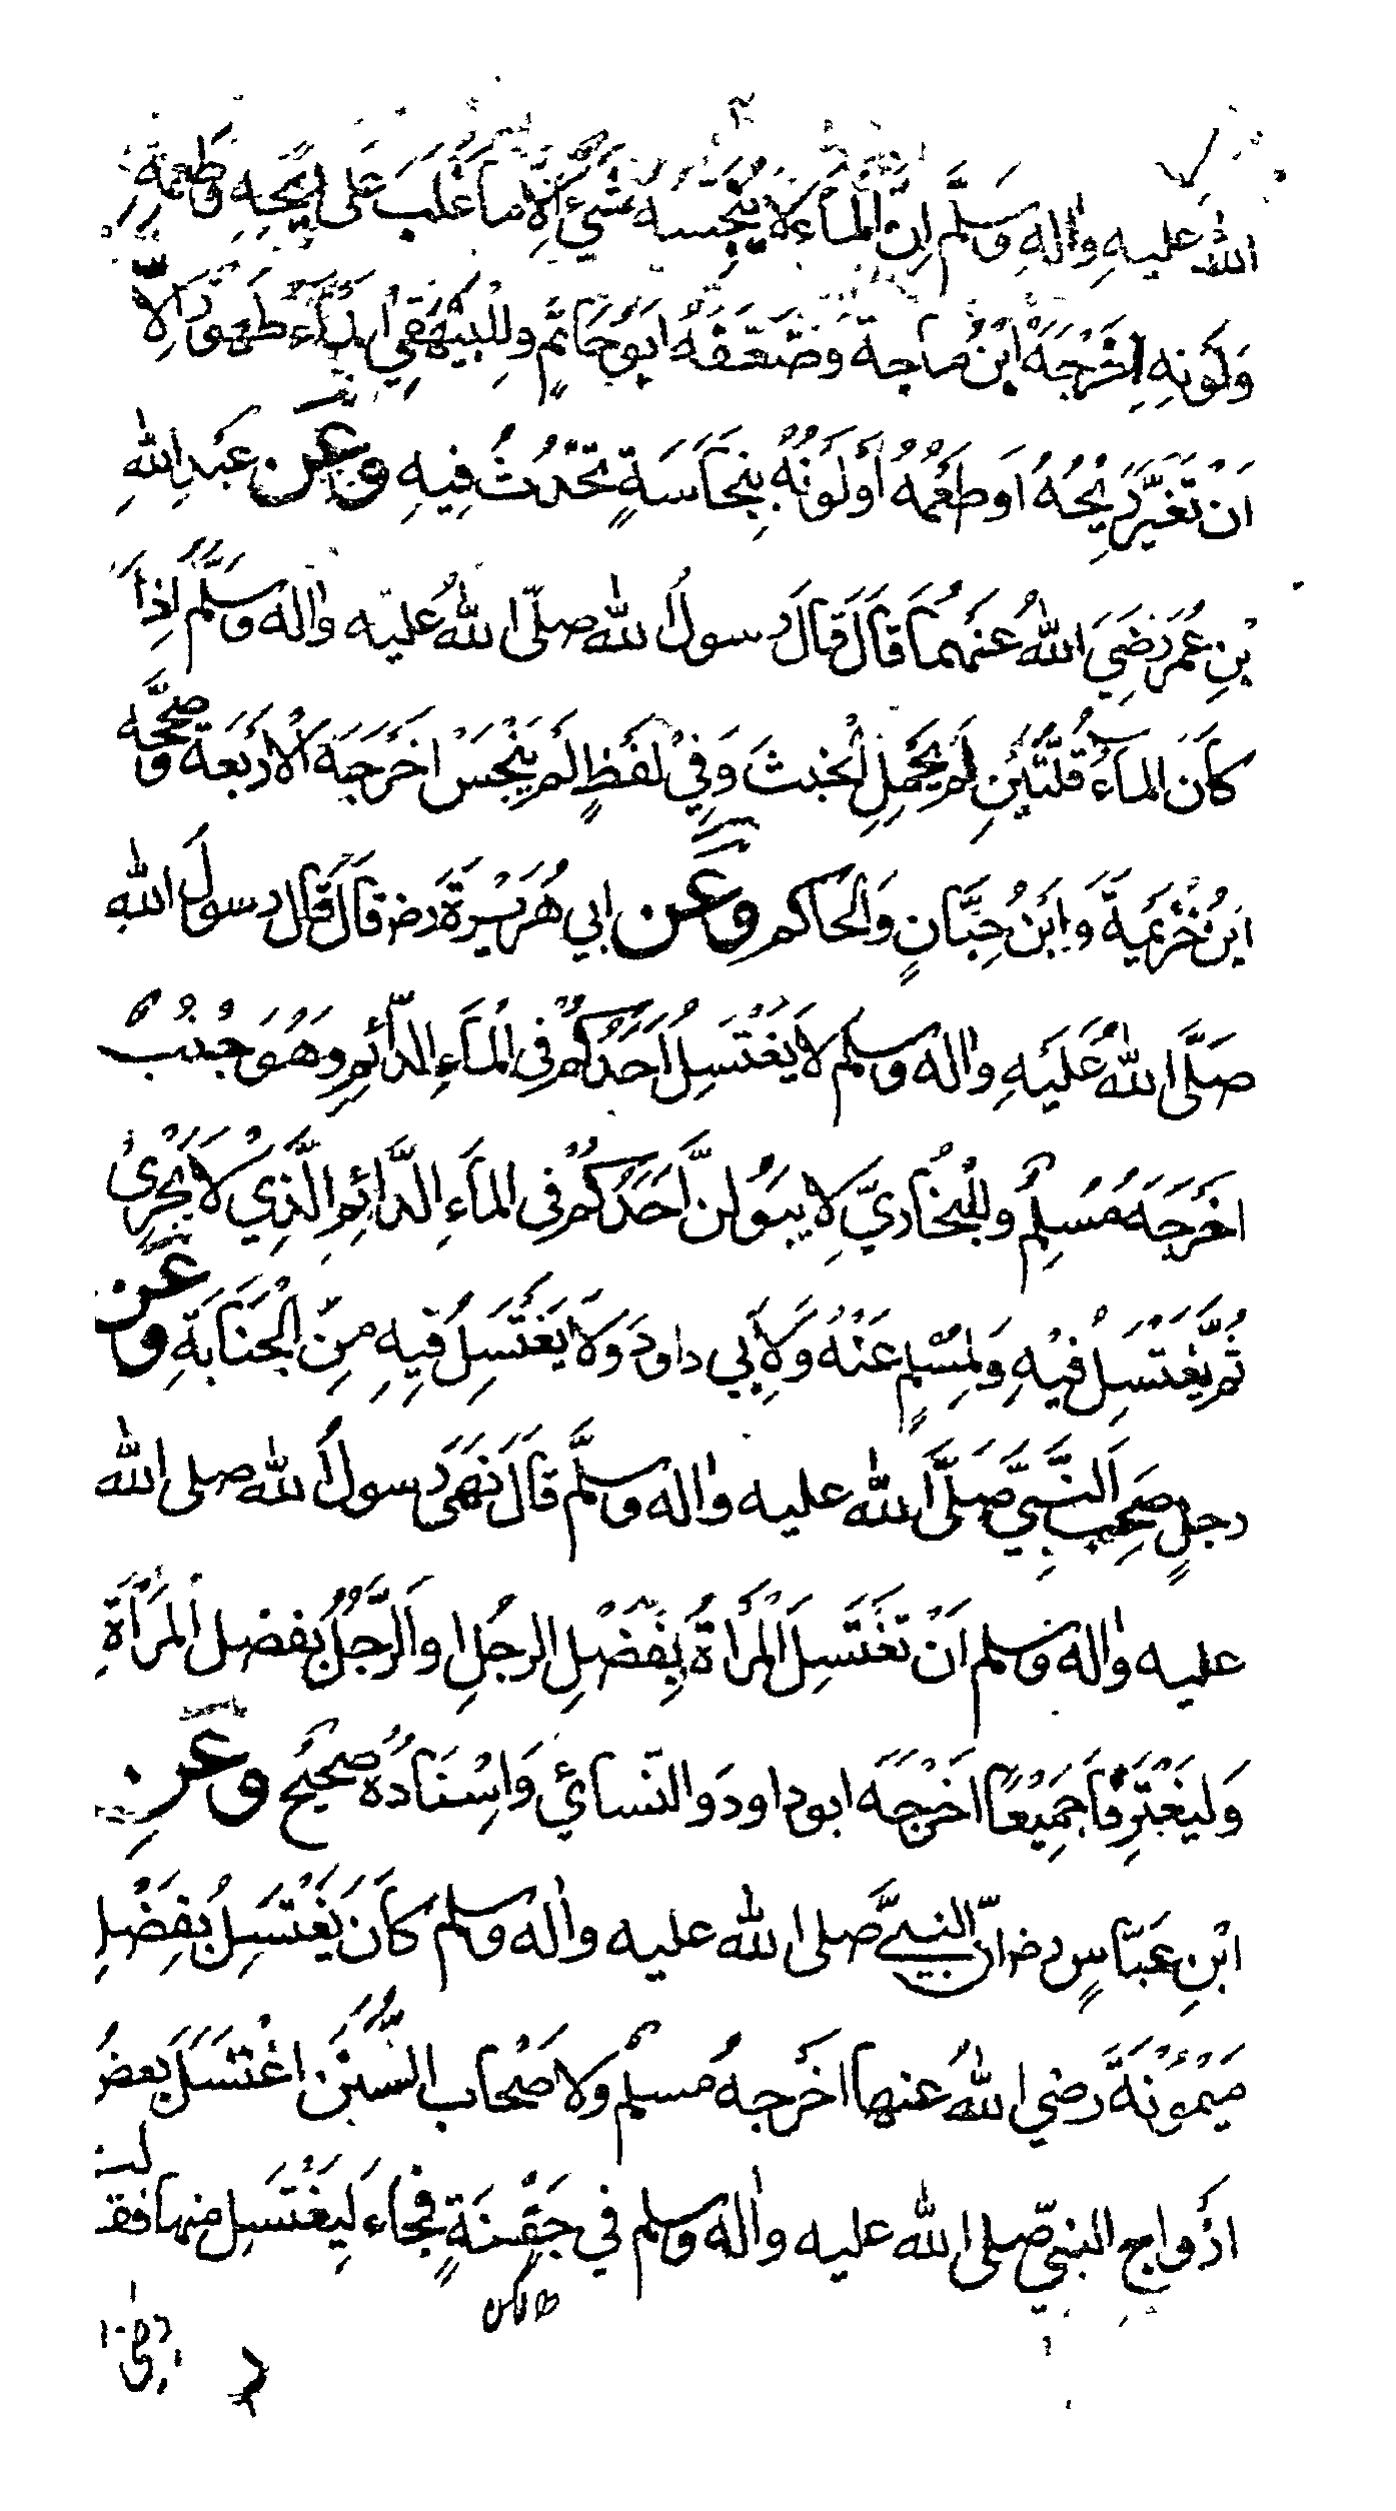 الله عليه واله وسلم ان الماء لا ينجسه شيء الا ما غلب على ريحه وطعمه
ولونه اخرجه ابن ماجة وضعفه ابو حاتم وللبيهقي الماء طهور الا
ان تغير ريحه او طعمه او لونه بنجاسة تحدث فيه وعن عبد الله
بن عمر رضي الله عنهما قال قال رسول الله صلى الله عليه واله وسلم اذا
كان الماء قلتين لم يحمل الخبث وفي لفظ لم ينجس اخرجه الاربعة وصححه
ابن خزيمة وابن حبان والحاكم وعن ابي هريرة رض قال قال رسول الله
صلى الله عليه واله وسلم لا يغتسل احدكم في الماء الدائم وهو جنب
اخرجه مسلم وللبخاري لا يبولن احدكم في الماء الدائم الذي لا يجري
ثم يغتسل فيه ولمسلم عنه ولابي داود ولا يغتسل فيه من الجنابة وعن
رجل صحب النبي صلى الله عليه واله وسلم قال نهى رسول الله صلى الله
عليه واله وسلم ان تغتسل المرأة بفضل الرجل او الرجل بفضل المرأة
وليغترفا جميعا اخرجه ابو داود والنسائي واسناده صحيح وعن
ابن عباس رض ان النبي صلى الله عليه واله وسلم كان يغتسل بفضل
ميمونة رضي الله عنها اخرجه مسلم ولاصحاب السنن اغتسل بعض
ازواج النبي صلى الله عليه واله وسلم في جفنة فجاء ليغتسل منها فقـ